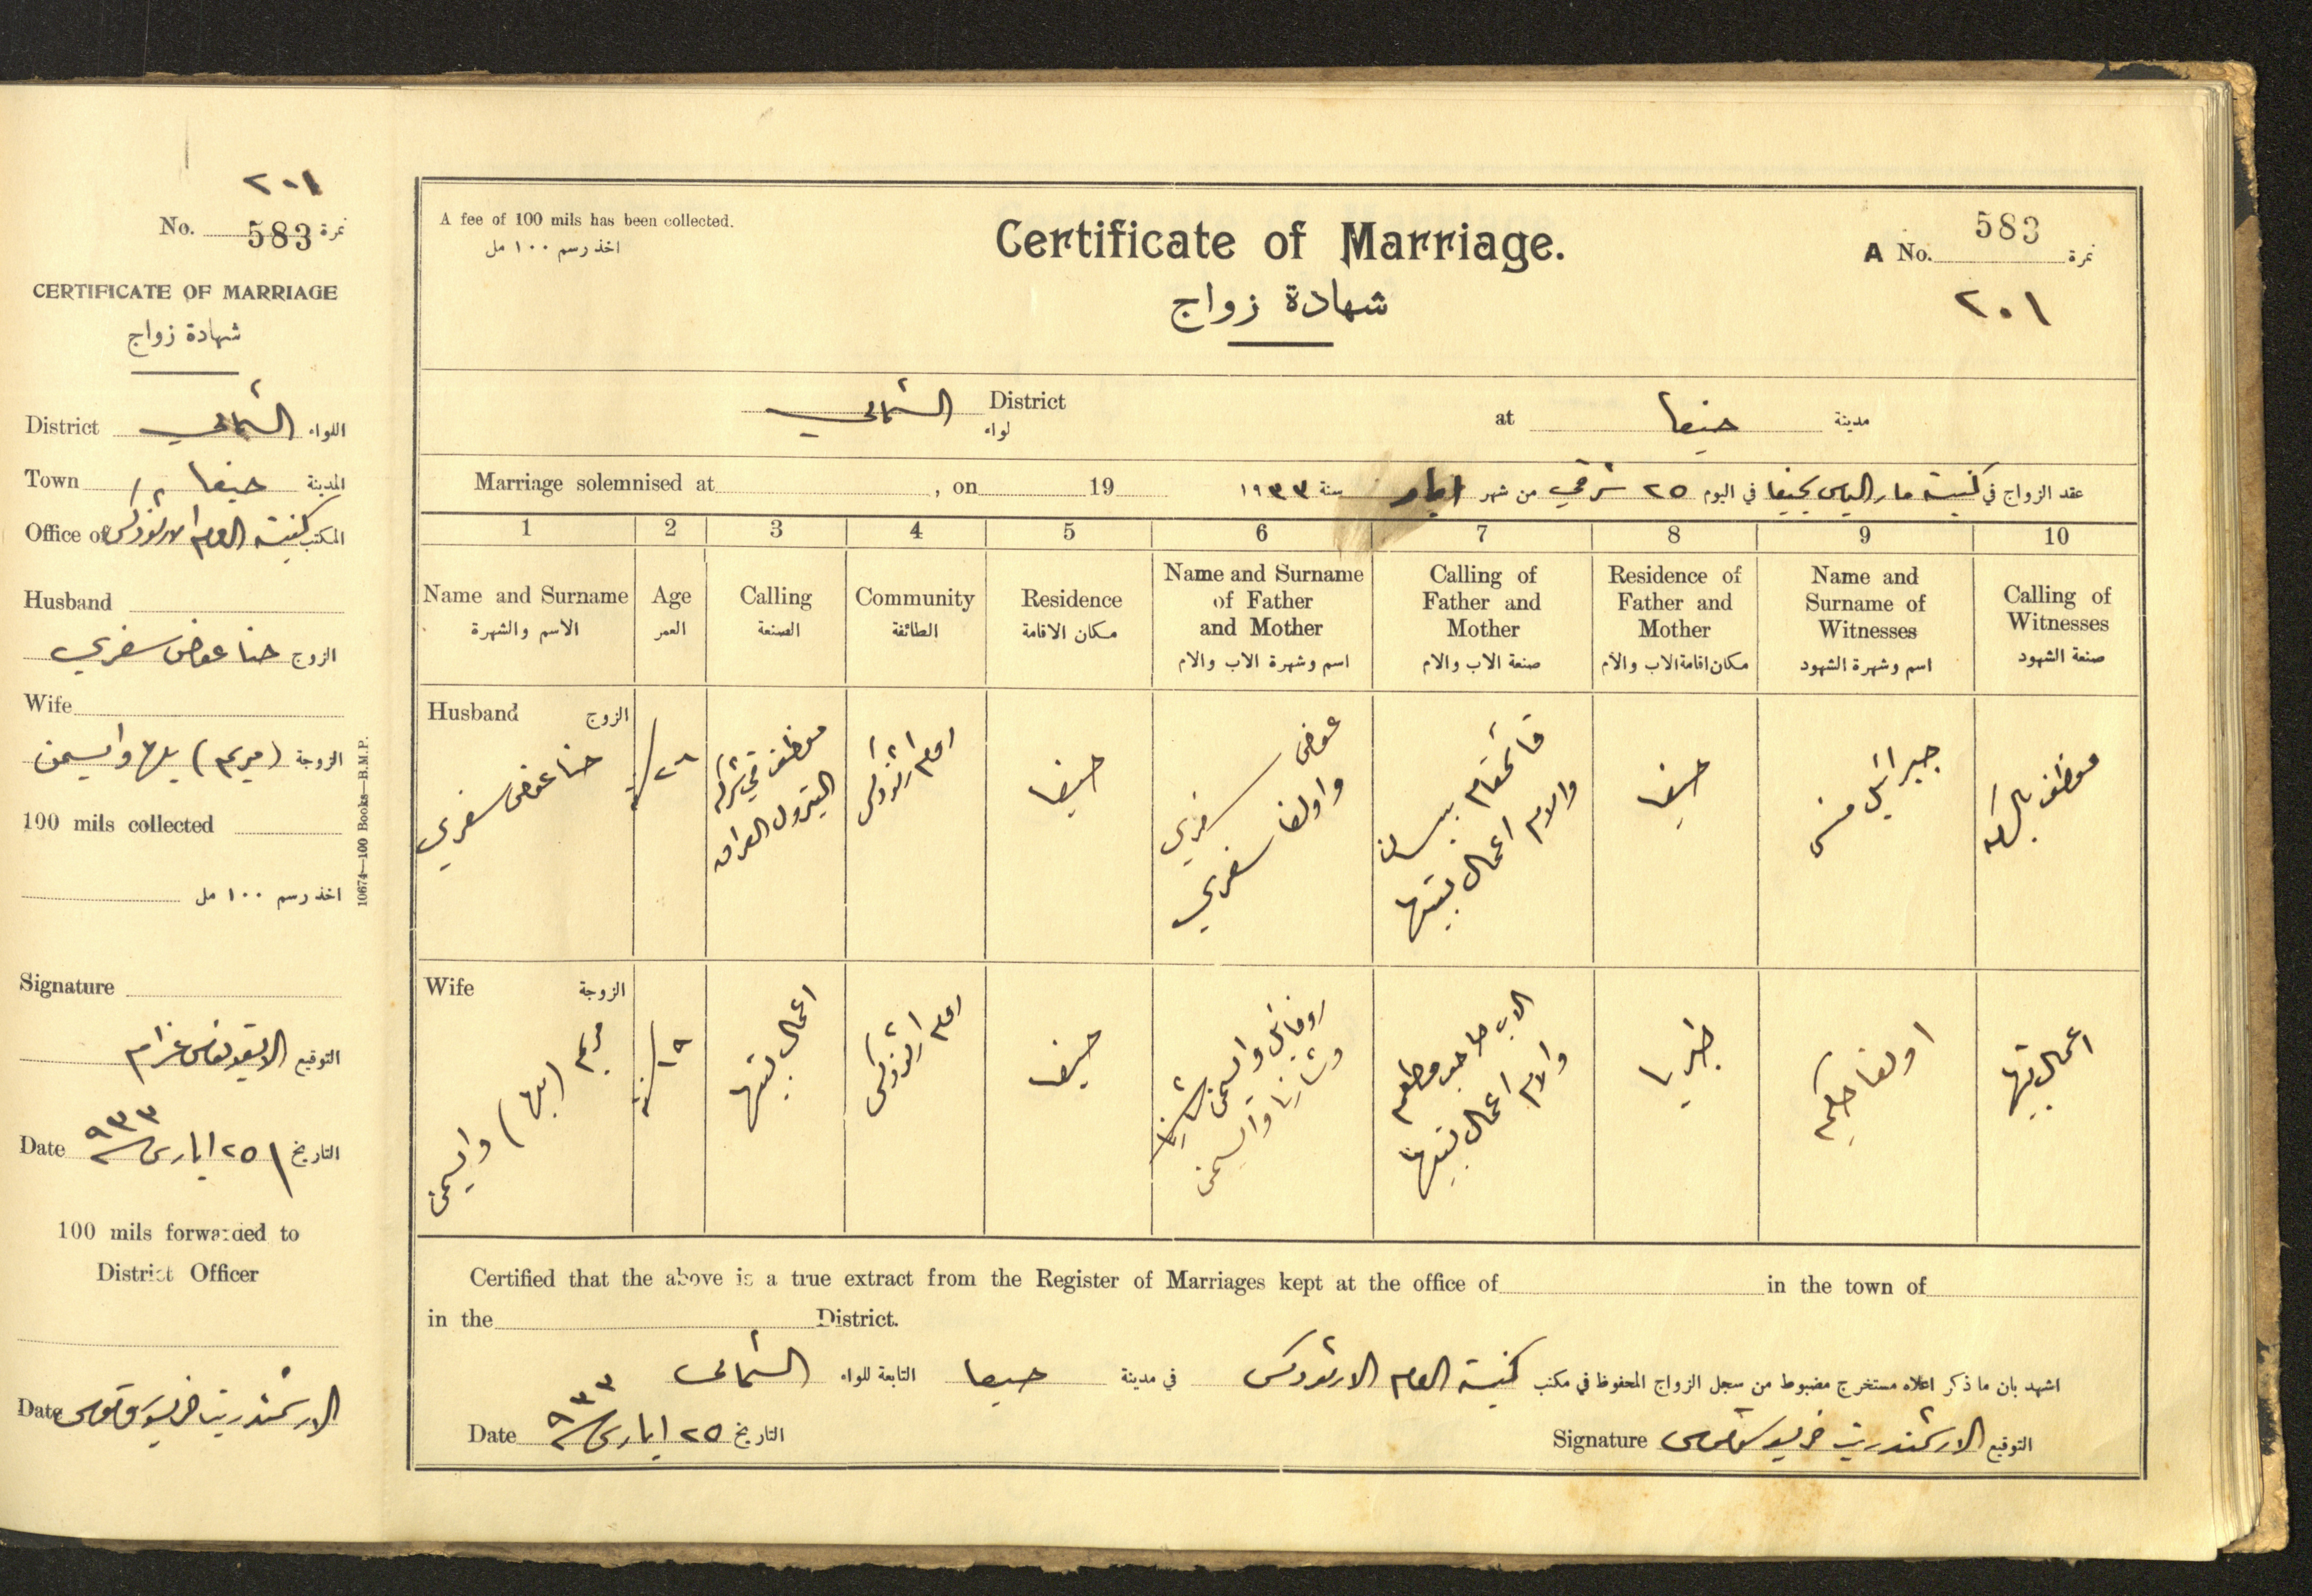 ٢٠١
No. 583 نمرة
CERTIFICATE OF MARRIAGE
شهادة زواج
District الشمالي اللواء
Town حيفا المدينة
Office of كنيسة الروم الارثوذكس المكتب
Husband
الزوج حنا عوض سفري
Wife
الزوجة (مريم) بلها وايسمن
100 mils collected
اخذ رسم ١٠٠ مل
Signature
التوقيع
Date ٢٥ ايار ٩٣٣ التاريخ
100 mils forwarded to
District Officer
Date الارشمندريت
10674—100 Books—B.M.P.
A fee of 100 mils has been collected.
اخذ رسم ١٠٠ مل
Certificate of Marriage.
شهادة زواج
A No. 583 نمرة
٢٠١
الشمالي District لواء
at حيفا مدينة
Marriage solemnised at , on 19
عقد الزواج في كنيسة مار الياس بحيفا في اليوم ٢٥ شرقي من شهر ايار سنة ١٩٣٣
1 2 3 4 5 6 7 8 9 10
Name and Surname الاسم والشهرة
Age العمر
Calling الصنعة
Community الطائفة
Residence مكان الاقامة
Name and Surname of Father and Mother اسم وشهرة الاب والام
Calling of Father and Mother صنعة الاب والام
Residence of Father and Mother مكان اقامة الاب والام
Name and Surname of Witnesses اسم وشهرة الشهود
Calling of Witnesses صنعة الشهود
Husband الزوج
حنا عوض سفري
٢٦ سنة
موظف في شركة
البترول العراق
روم ارثوذكس
حيفا
عوض سفري
واولغا سفري
قائمقام بيسان
والام اعمال بيتها
حيفا
جبرائيل منسى
موظف
Wife الزوجة
مريم (بلها) وايسمن
١٩ سنة
اعمال بيتها
روم ارثوذكس
حيفا
روفائيل وايسمن
وايسمن
الاب صاحب مطعم
والام اعمال بيتها
طبريا
اولغا حكيم
اعمال بيتها
Certified that the above is a true extract from the Register of Marriages kept at the office of in the town of
in the District.
اشهد بان ما ذكر اعلاه مستخرج مضبوط من سجل الزواج المحفوظ في مكتب كنيسة الروم الارثوذكس في مدينة حيفا التابعة للواء الشمالي
Date ٢٥ ايار ٩٣٣ التاريخ
Signature الارشمندريت التوقيع